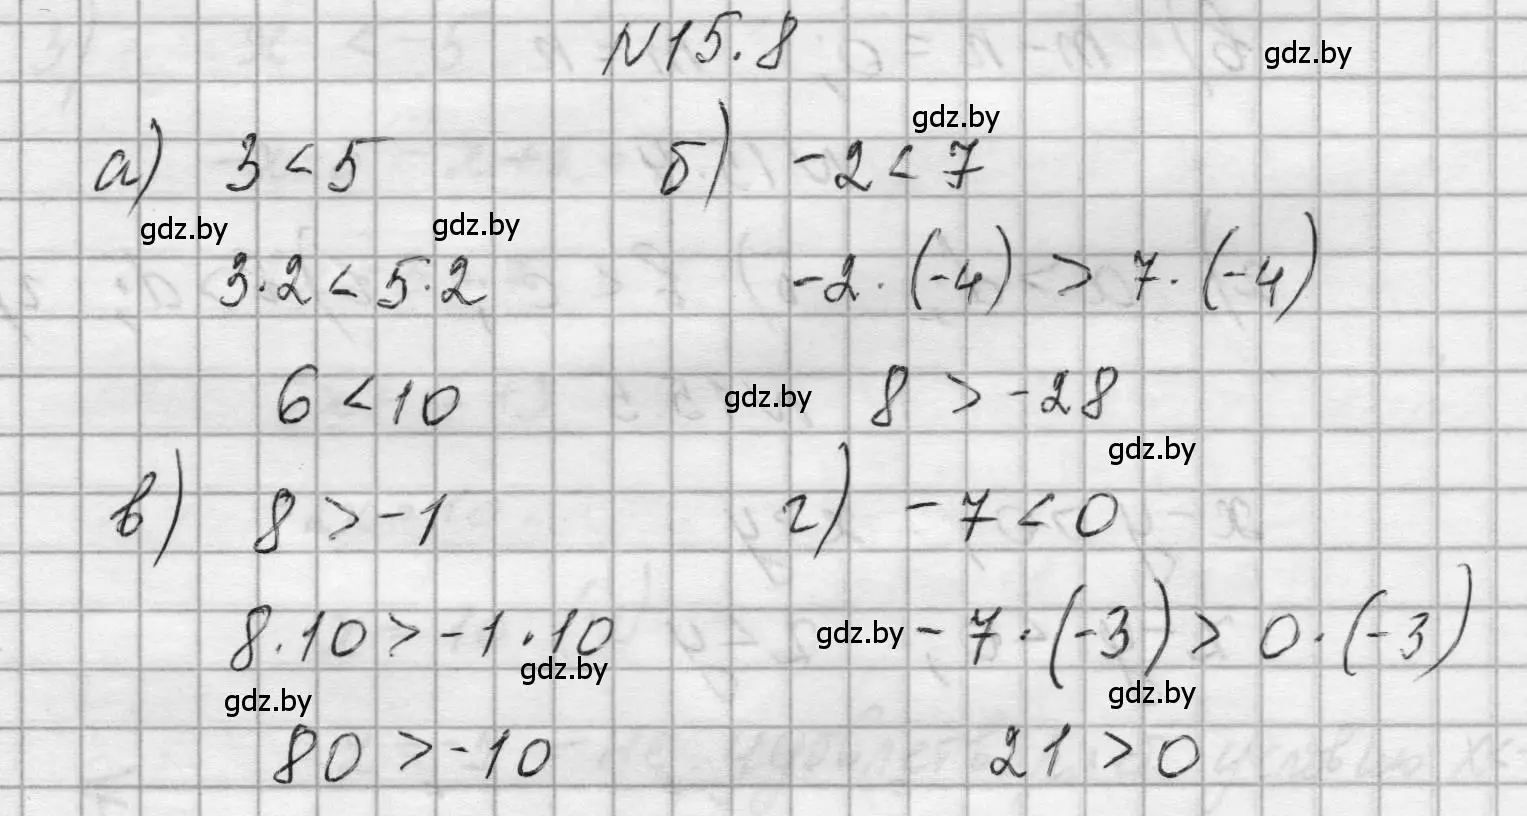 N15.8
gdz.by
gdz.by
а) 3 < 5
б) -2 < 7
gdz.by
gdz.by
3·2 < 5·2
-2·(-4) > 7·(-4)
6 < 10
gdz.by
8 > -28
gdz.by
в) 8 > -1
г) -7 < 0
8·10 > -1·10
gdz.by
-7·(-3) > 0·(-3)
gdz.by
gdz.by
gdz.by
80 > -10
21 > 0